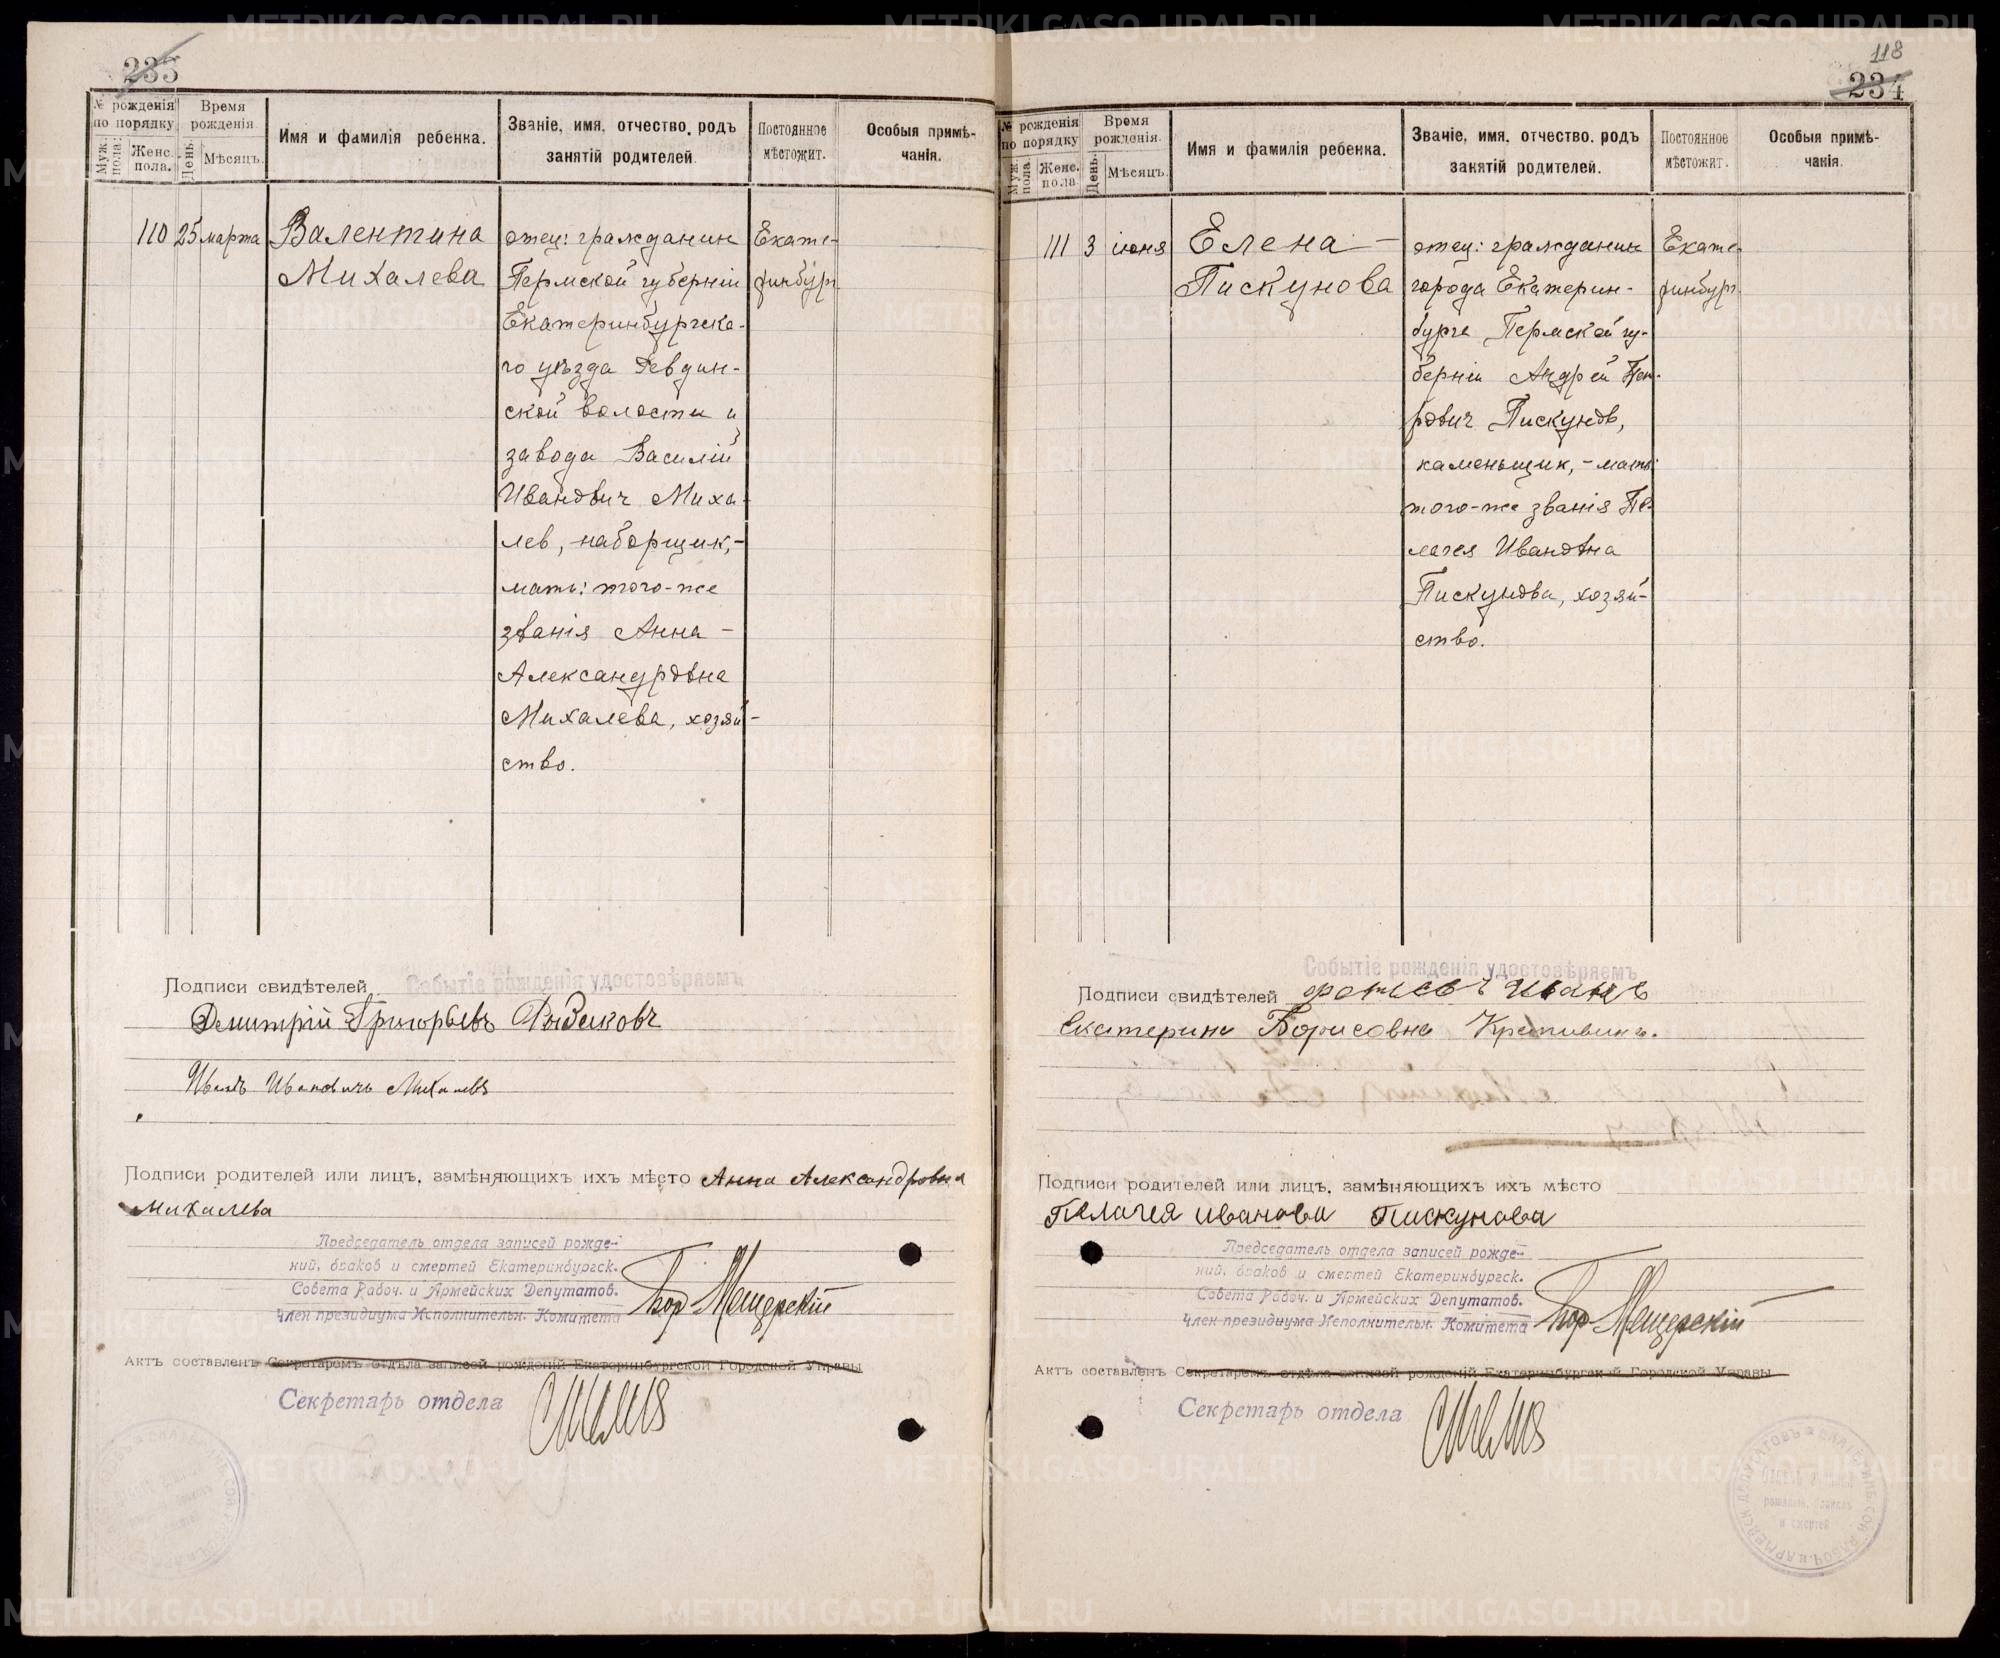 235
№ рожденія по порядку
Муж. пола.
Женс. пола.
Время рожденія
День.
Мѣсяцъ.
Имя и фамилія ребенка.
Званіе, имя, отчество, родъ
занятій родителей.
Постоянное
мѣстожит.
Особыя примѣ-
чанія.
110 25 марта
Валентина
Михалева
отец: гражданин
Пермской губерніи
Екатеринбургска-
го уѣзда Ревдин-
ской волости и
завода Василій
Иванович Миха-
лев, наборщик,-
мать: того-же
званія Анна -
Александровна
Михалева, хозяй-
ство.
Екате-
ринбург
Событіе рожденія удостовѣряемъ
Подписи свидѣтелей
Дмитрій Григорьевъ
Иванъ Ивановичъ Михалевъ
Подписи родителей или лицъ, замѣняющихъ ихъ мѣсто Анна Александровна
Михалева
Председатель отдела записей рожде-
ний, браков и смертей Екатеринбургск.
Совета Рабоч. и Армейских Депутатов.
Член президиума Исполнительн. Комитета
Мещерскій
Актъ составленъ Секретаремъ отдѣла записей рожденій Екатеринбургской Городской Управы
Секретарь отдела
118
234
№ рожденія по порядку
Муж. пола
Женс. пола
Время рожденія.
День.
Мѣсяцъ.
Имя и фамилія ребенка.
Званіе, имя, отчество, родъ
занятій родителей.
Постоянное
мѣстожит.
Особыя примѣ-
чанія.
111 3 июня
Елена -
Пискунова
отец: гражданин
города Екатерин-
бурга Пермской гу-
берніи Андрей
Пискунов,
каменьщик, - мать:
того-же званія Пе-
лагея Ивановна
Пискунова, хозяй-
ство.
Екате-
ринбург
Событіе рожденія удостовѣряемъ
Подписи свидѣтелей Иванъ
Екатерина Борисовна
Подписи родителей или лицъ, замѣняющихъ ихъ мѣсто
Пелагея иванова Пискунова
Председатель отдела записей рожде-
ний, браков и смертей Екатеринбургск.
Совета Рабоч. и Армейских Депутатов.
Член президиума Исполнительн. Комитета
Мещерскій
Актъ составленъ Секретаремъ отдѣла записей рожденій Екатеринбургской Городской Управы
Секретарь отдела
METRIKI.GASO-URAL.RU